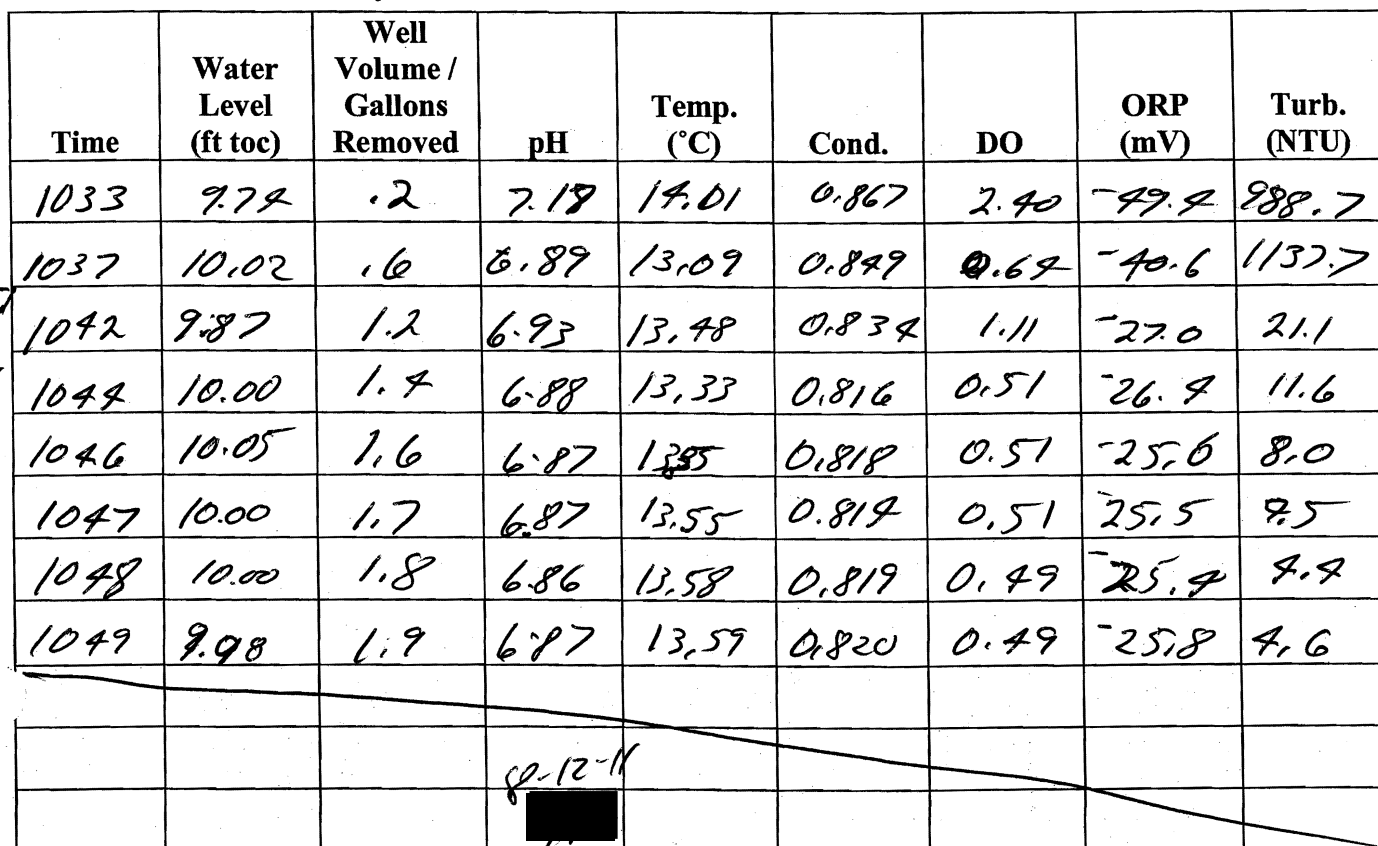 Time Water Level (ft toc) Well Volume / Gallons Removed pH Temp. (°C) Cond. DO ORP (mV) Turb. (NTU)
1033 9.74 .2 7.18 14.01 0.867 2.40 -49.4 988.7
1037 10.02 .6 6.89 13.09 0.849 0.64 -40.6 1137.7
1042 9.87 1.2 6.93 13.48 0.834 1.11 -27.0 21.1
1044 10.00 1.4 6.88 13.33 0.816 0.51 -26.4 11.6
1046 10.05 1.6 6.87 0.818 0.51 -25.6 8.0
1047 10.00 1.7 6.87 13.55 0.814 0.51 -25.5
1048 10.00 1.8 6.86 13.58 0.819 0.49 -25.4 4.4
1049 9.98 1.9 6.87 13.59 0.820 0.49 -25.8 4.6
8-12-11